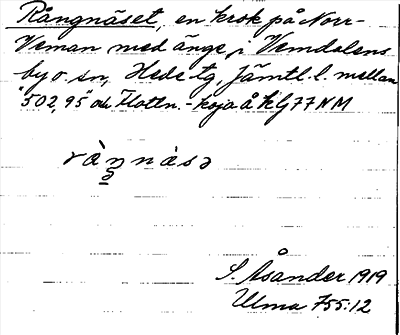 Rångnäset, en krok på Norr-
Veman med änge i Vemdalens
by o. sn, Hede tg, Jämtl. l. mellan
"502,95" och Flottn.-koja å KG 77 NM
ràŋnàsə
S. Åsander 1919
Ulma 755:12